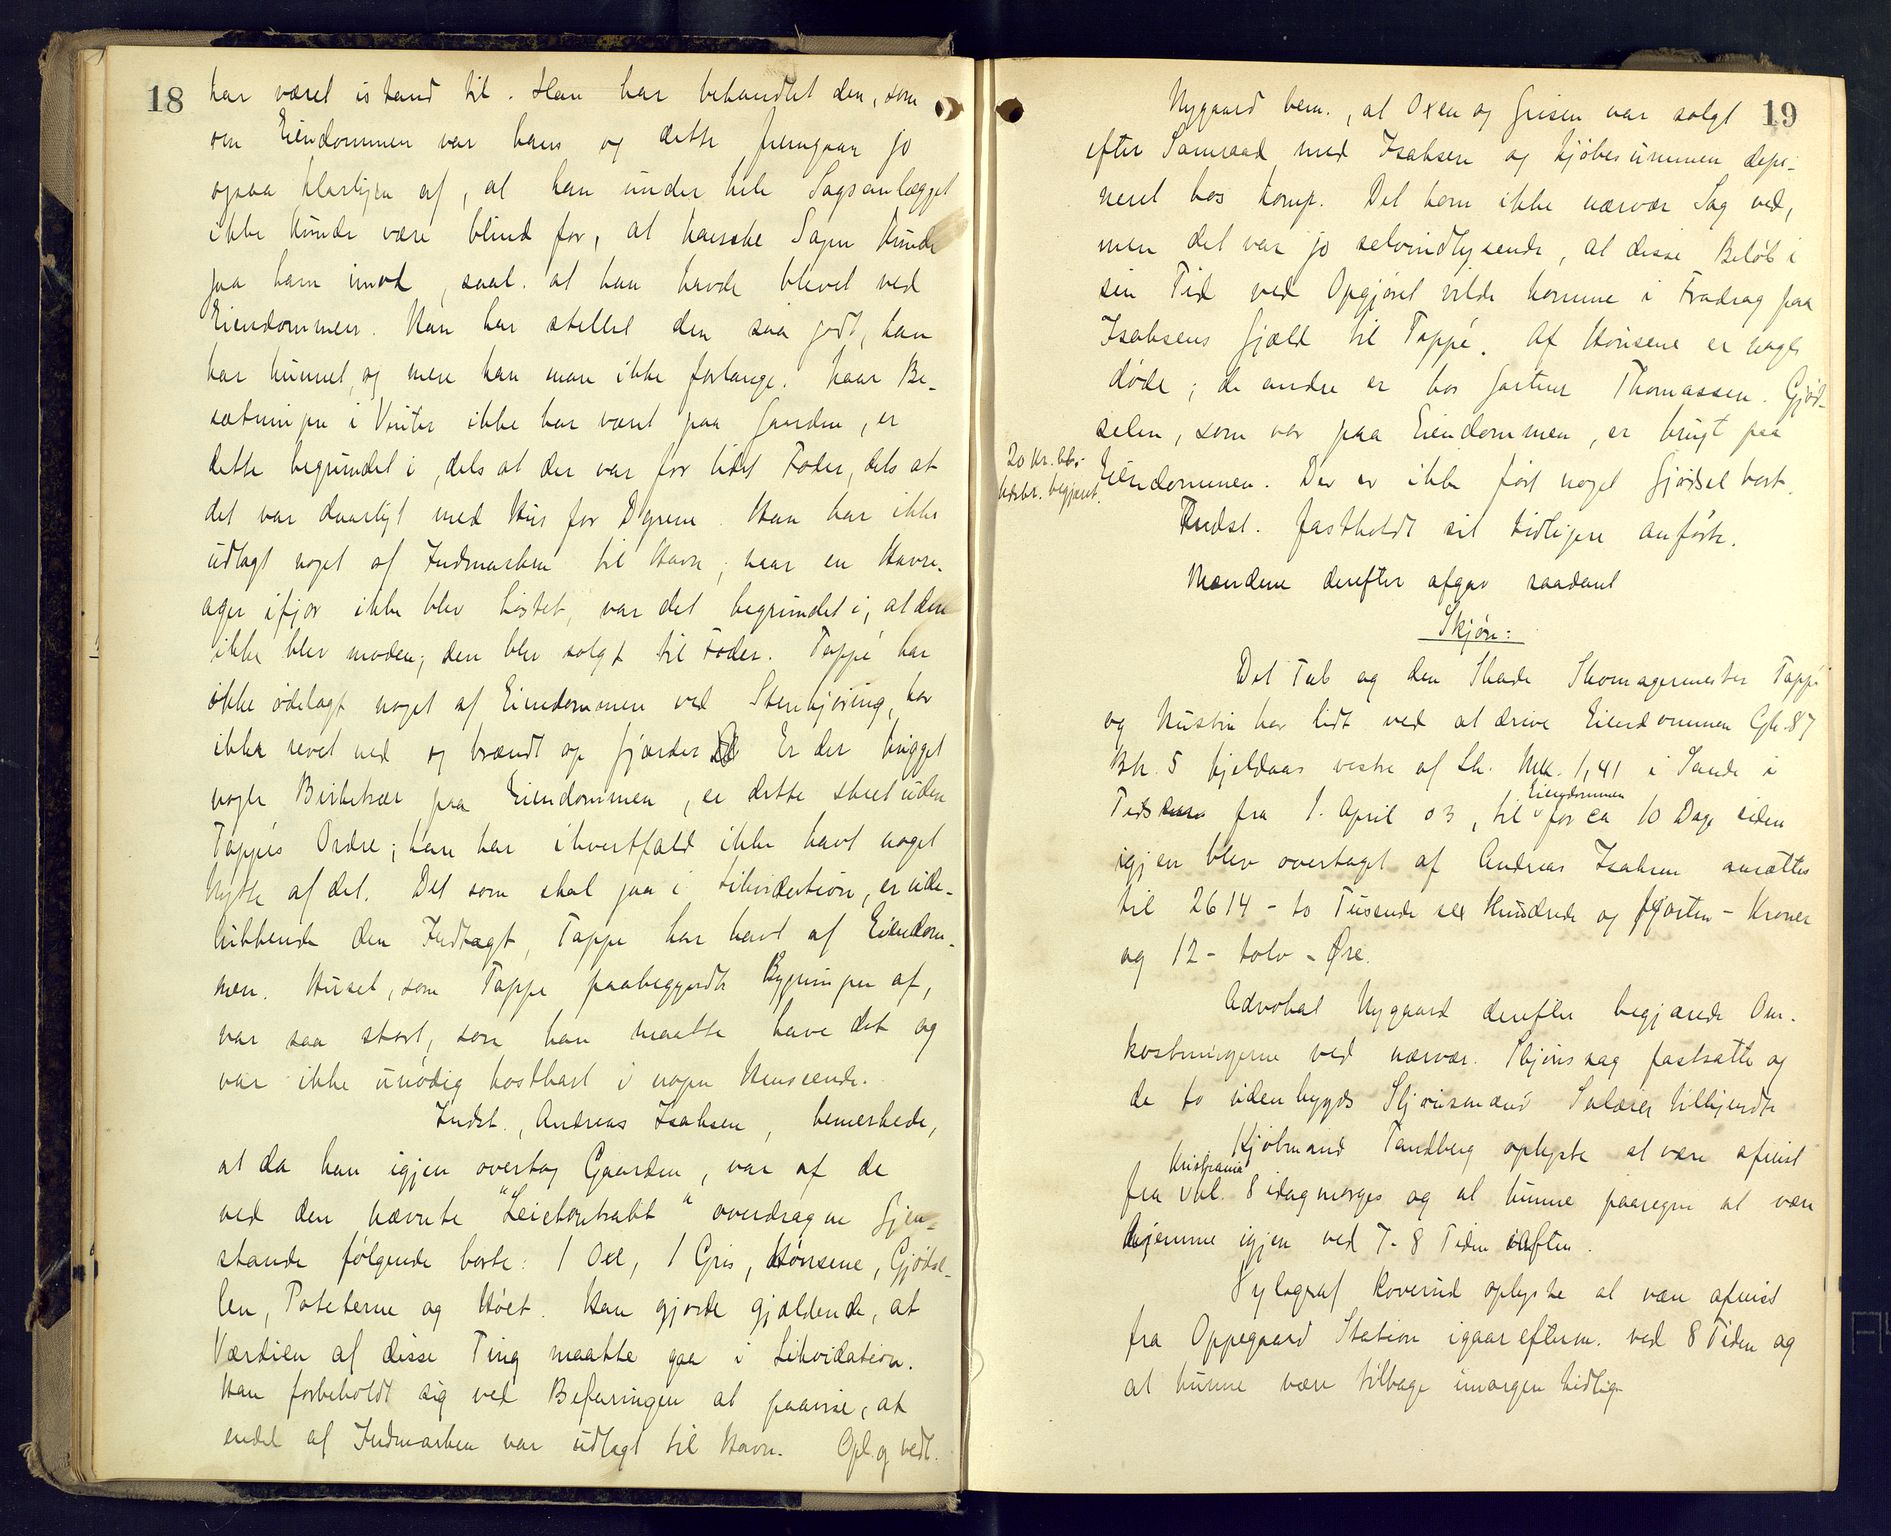 18
har været istand til. Han har behandlet den, som
om Eiendommen var hans og dette fremgaar jo
ogsaa klarligen af, at han under hele Sagsanlægget
ikke kunde være blind for, at kanske Sagen kunde
gaa ham imod, saal. at han havde blevet ved
Eiendommen. Han har stellet den saa godt, han
har kunnet, og mere kan man ikke forlange. Naar Be-
sætningen i Vinter ikke har været paa Gaarden, er
dette begrundet i, dels at der var for lidet Foder, dels at
det var daarligt med Hus for Dyrene. Han har ikke
udlagt noget af Indmarken til Havn; naar en Havre-
ager ifjor ikke blev høstet, var det begrundet i, at den
ikke blev moden; den blev solgt til Foder. Tappé har
ikke ødelagt noget af Eiendommen ved Stenkjøring, har
ikke revet ned og brændt op Gjærder. Er der hugget
nogle Birketrær paa Eiendommen, er dette skeet uden
Tappés Ordre; han har ihvertfald ikke havt noget
Nytte af det. Det som skal gaa i Likvidation, er ude-
lukkende den Indtægt, Tappe har havt af Eiendom-
men. Huset, som Tappe paabegyndte Bygningen af,
var saa stort, som han maatte have det og
var ikke unødig kostbart i nogen Henseende.
Indst., Andreas Isaksen, bemerkede,
at da han igjen overtog Gaarden, var af de
ved den nævnte "Leiekontrakt" overdragne Gjen-
stande følgende borte: 1 Oxe, 1 Gris, Hønsene, Gjødse-
len, Poteterne og Høet. Han gjorde gjældende, at
Værdien af disse Ting maatte gaa i Likvidation.
Han forbeholdt sig ved Befaringen at paavise, at
endel af Indmarken var udlagt til Havn. Opl. og vedt.
19
Nygaard bem., at Oxen og Grisen var solgt
efter Samraad med Isaksen og Kjøbesummen depo-
neret hos Komp. Det kom ikke nærvær. Sag ved,
men det var jo selvindlysende, at disse Beløb i
sin Tid ved Opgjøret vilde komme i Fradrag paa
Isaksens Gjæld til Tappé. Af Hønsene er nogle
døde; de andre er hos Gartner Thomassen. Gjød-
selen, som var paa Eiendommen, er brugt paa
20 Kr.
begjæret.
Eiendommen. Der er ikke ført noget Gjødsel bort.
Indst. fastholdt sit tidligere anførte.
Mændene derefter afgav saadant
Skjøn:
Det Tab og den Skade Skomagermester Tappé
og Hustru har lidt ved at drive Eiendommen Gh. 87
Bh. 5 Kjeldaas vestre af Sk. Mk. 1,41 i Sande i
Tidsrum fra 1. April 03, til Eiendommen for ca 10 Dage siden
igjen blev overtaget af Andreas Isaksen ansættes
til 2614 - to Tusende sex Hundrede og fjorten - Kroner
og 12 - tolv - Øre.
Advokat Nygaard derefter begjærede Om-
kostningerne ved nærvær. Skjønssag fastsatte og
de to udenbygds Skjønsmænd Salærer tilkjendte
Kjøbmand Tandberg oplyste at være afreist
fra Kristiania Kl. 8 idagmorges og at kunne paaregne at være
hjemme igjen ved 7-8 Tiden iaften.
Xylograf Koverud oplyste at være afreist
fra Oppegaard Station igaar efterm. ved 8 Tiden og
at kunne være tilbage imorgen tidlig